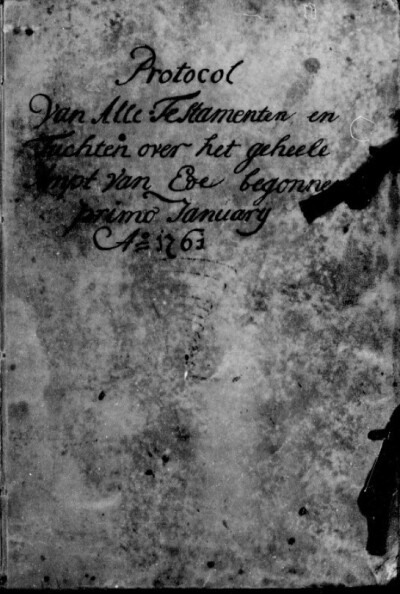 Protocol
Van Alle Testamenten en
Tuchten over het geheele
Ampt Van Ede begonnen
primo January
Aº 1763